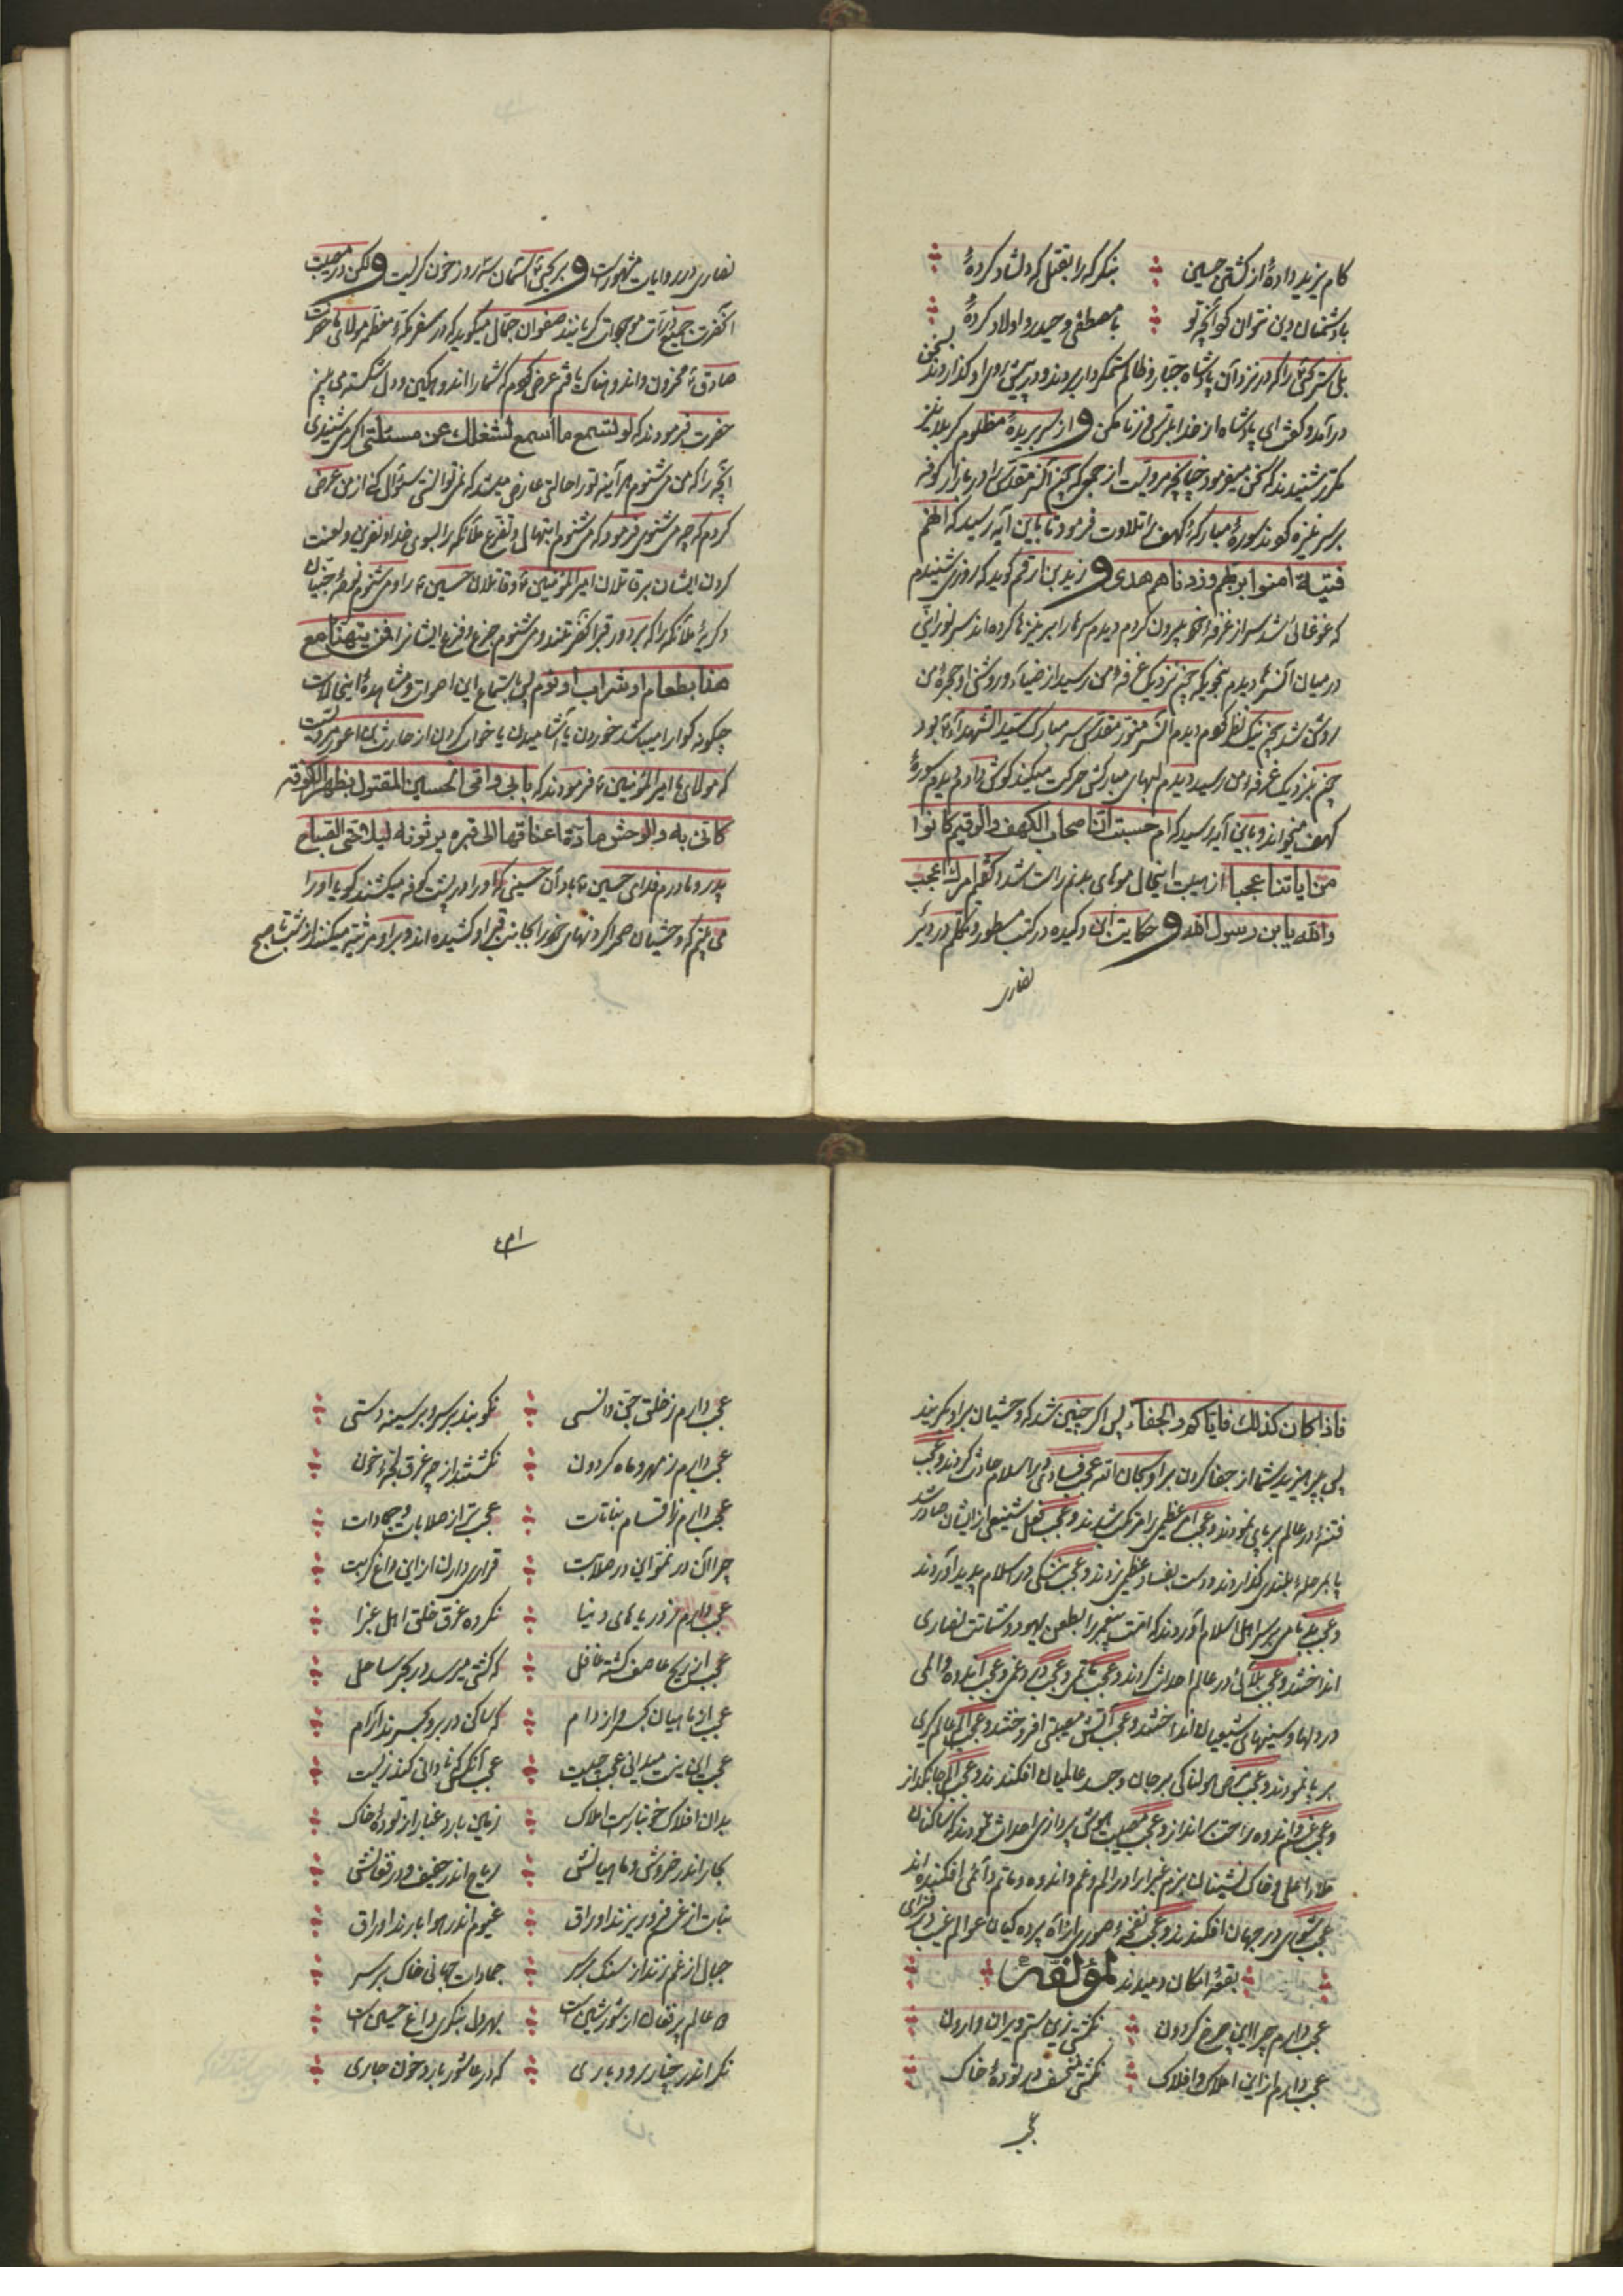 کام یزید دادهٔ از کشتن حسین
بنگر که را بقتل که دلشاد کردهٔ
با دشمنان دین نتوان کرد آنچه تو
با مصطفی و حیدر و اولاد کردهٔ
بلی سر کسی را که در نزد آن پادشاه جبار و ظالم ستمکار بردند و در پیش روی او گذاردند بسخن
درآمد و گفت ای پادشاه از خدا بترس و زنا مکن و از سر بریدهٔ مظلوم کربلا نیز
مکرر شنیدند که سخن میفرمود چنانچه مرویست از جمله که چون آن سر مقدس را در بازار کوفه
بر سر نیزه کردند سورهٔ مبارکهٔ کهف را تلاوت فرمود تا باین آیه رسید که انهم
فتیة امنوا بربهم وزدناهم هدی و زید بن ارقم گوید که روزی شنیدم
که غوغائی شد سر از غرفهٔ خود بیرون کردم دیدم سرها را بر نیزها کرده اند سر نورانی
در میان آن سرها دیدم بنحویکه چون نزدیک غرفهٔ من رسید از ضیاء و روشنی او حجرهٔ من
روشن شد چون نیک نظر کردم دیدم آن سر منور مقدس سر مبارک سید الشهداء بود
چون بنزدیک غرفهٔ من رسید دیدم لبهای مبارکش حرکت میکند گوش دادم دیدم سورهٔ
کهف میخواند و باین آیه رسید که ام حسبت ان اصحاب الکهف والرقیم کانوا
من ایاتنا عجبا از هیبت اینحال موهای بدنم راست شد و گفتم امرک اعجب
والله یابن رسول الله و حکایت در کتب مسطور و تکلم در دیر
نصاری
نصاری در روایات مشهور است و بر یحیی آسمان سه روز خون گریست و لکن در مصیبت
آنحضرت جمیع ذرات موجودات گریانند صفوان جمال میگوید که در سفر مکهٔ معظمه مولای ما حضرت
صادق محزون و اندوهناک یافتم عرض کردم که شما را اندوهگین و دل شکسته می بینم
حضرت فرمودند که لو تسمع ما اسمع لشغلک عن مسئلتی اگر می شنیدی
آنچه را که من می شنوم هر آینه تو را حالتی عارض میشد که نمیتوانستی سؤال کنی از من عرض
کردم که چه می شنوی فرمود که می شنوم ابتهال و تضرع ملائکه را بسوی خدا و نفرین و لعنت
کردن ایشان بر قاتلان امیر المؤمنین و قاتلان حسین را و می شنوم نوحهٔ جنیان
و گریهٔ ملائکه را که بر دور قبر آنحضرتند و می شنوم جزع و فزع ایشانرا فمن یتهنا مع
هذا بطعام او شراب او نوم پس با استماع این اصوات و مشاهدهٔ اینحالات
چگونه گوارا میباشد خوردن یا آشامیدن یا خواب کردن از حارث اعور مرویست
که مولای ما امیر المؤمنین فرمودند که بابی وامی الحسین المقتول بظهر الکوفة
کانی به والوحش مادة اعناقها الی قبره یرثونه لیلا حتی الصباح
پدر و مادرم فدای حسین باد آن حسینی که او را در پشت کوفه میکشند گویا او را
می بینم که وحشیان صحرا گردنهای خود را بجانب قبر او کشیده اند و بر او مرثیه میکنند از شب تا صبح
فاذا کان کذلک فایاکم والجفاء پس اگر چنین شد که وحشیان بر او بگریند
پس بپرهیزید شما از جفا کردن بر او سبحان الله عجب فسادی در اسلام حادث کردند و عجب
فتنهٔ در عالم بر پای نمودند و عجب امر عظیمی را مرتکب شدند و عجب فعل شنیعی از ایشان صادر شد
پا بمرحلهٔ بلندی گذاردند و دست بفساد عظیمی زدند و عجب در اسلام پدید آوردند
و عجب بر سر اهل اسلام آوردند که امت پیغمبر را بطعن یهود و شماتت نصاری
انداختند و عجب بلائی در عالم احداث کردند و عجب ماتمی و عجب و غمی و عجب و المی
در دلها و سینهای شیعیان انداختند و عجب آتش مصیبتی افروختند و عجب
بر پا نمودند و عجب هولناکی بر جان و جسد عالمیان افکندند و عجب جانگداز
و عجب غم و اندوه راحت برانداز و عجب مصیبت هوش پردازی احداث نمودند که ساکنان
ملاء اعلی و خاک نشینان بزم غبرا را در الم و غم و اندوه و ماتم دائمی افکنده اند
عجب شوری در جهان افکندند و عجب نفخهٔ صوری
بقعهٔ امکان دمیدند لمؤلفه
عجب دارم چرا این چرخ گردون
نگشتی زین ستم ویران و وارون
عجب دارم از این املاک و افلاک
نگشتی منخسف در تودهٔ خاک
عجب
عجب دارم ز خلق جن و انسی
نکوبند بر سر و بر سینه دستی
عجب دارم ز مهر و ماه گردون
نگشتند از چه غرق لجهٔ خون
عجب دارم ز اقسام نباتات
عجبتر از صلابات جمادات
چرا آن در نمو این در صلابت
قراری دارد از این داغ کربت
عجب دارم ز دریاهای دنیا
نکرده غرق خلق اهل غبرا
عجب از ریح عاصف گشته غافل
که کشتی میرسد در بحر ساحل
عجب از ماهیان بحر و از دام
که ساکن در بر و بحرند آرام
عجب این نیست میدانی عجب چیست
عجب آنکس که نادانی کند زیست
بدان افلاک خونبار است املاک
زمین بارد غبار از تودهٔ خاک
بحار اندر خروش و ماهیانش
ریاح اندر حفیف و در فغانش
نبات از غم فرو ریزند اوراق
غیوم اندر هوا بارند اوراق
جبال از غم زند از سنگ بر سر
جمادات جهانی خاک بر سر
عالم پر فغان از شور و شین است
بهر دل بنگری داغ حسین است
نگر اندر چنار رودباری
که در عاشور بارد خون جاری